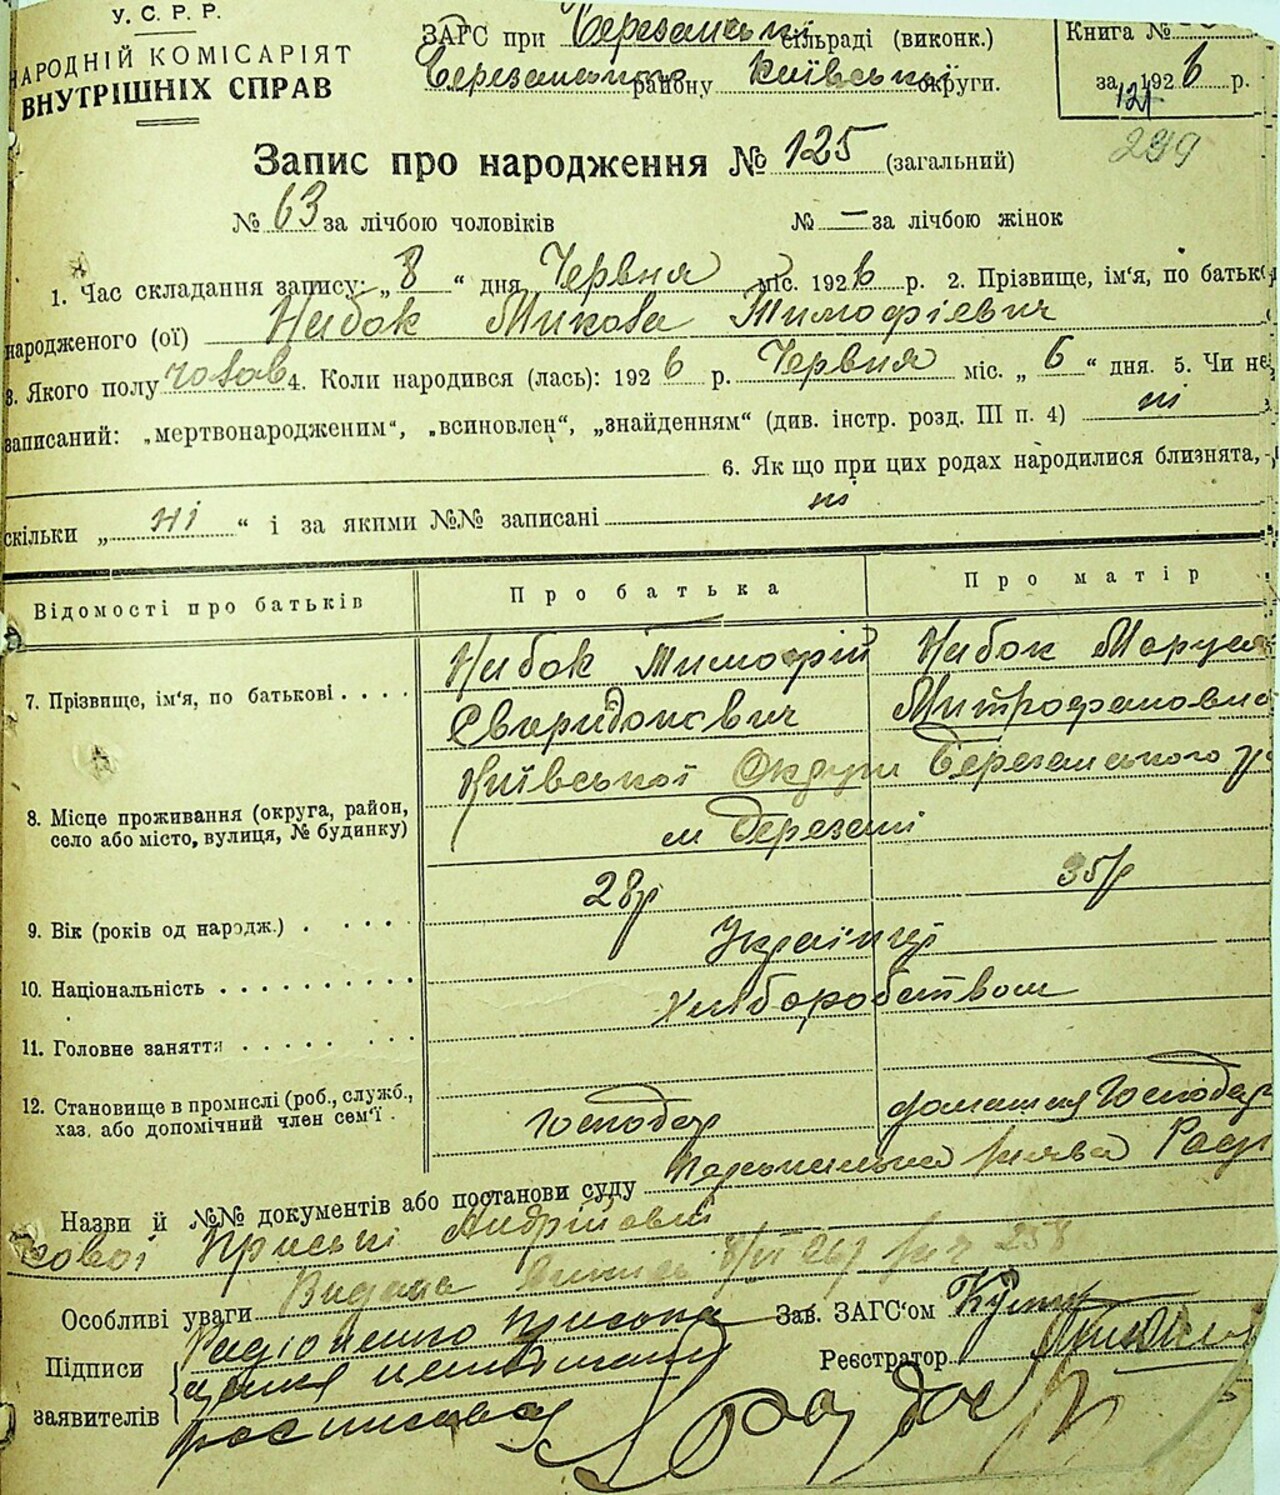 У. С. Р. Р.
НАРОДНІЙ КОМІСАРІЯТ
ВНУТРІШНІХ СПРАВ
ЗАГС при Березанській сільраді (виконк.)
Березанського району Київської округи.
Книга №
за 1926 р.
121
239
Запис про народження № 125 (загальний)
№ 63 за лічбою чоловіків № — за лічбою жінок
1. Час складання запису: „ 8 “ дня Червня міс. 1926 р. 2. Прізвище, ім‘я, по батьк
народженого (ої) Набок Микола Тимофієвич
3. Якого полу чолов 4. Коли народився (лась): 1926 р. Червня міс. „ 6 “ дня. 5. Чи не
записаний: „мертвонародженим“, „всиновлен“, „знайденням“ (див. інстр. розд. III п. 4) ні
6. Як що при цих родах народилися близнята,
скільки „ ні “ і за якими №№ записані ні
Відомості про батьків Про батька Про матір
7. Прізвище, ім‘я, по батькові . . . . Набок Тимофій Набок Маруся
Свиридонович Митрофановна
8. Місце проживання (округа, район, село або місто, вулиця, № будинку) Київської Округи Березанського р
м Березані
9. Вік (років од народж.) 28р 35р
10. Національність Українці
11. Головне заняття Хліборобством
12. Становище в промислі (роб., служб., хаз. або допомічний член сем‘ї . Господар домашня Господар
Назви й №№ документів або постанови суду заява
Приські Андрійовні
Особливі уваги Видана 258
Зав. ЗАГС‘ом
Підписи
заявителів
Приська
Реєстратор